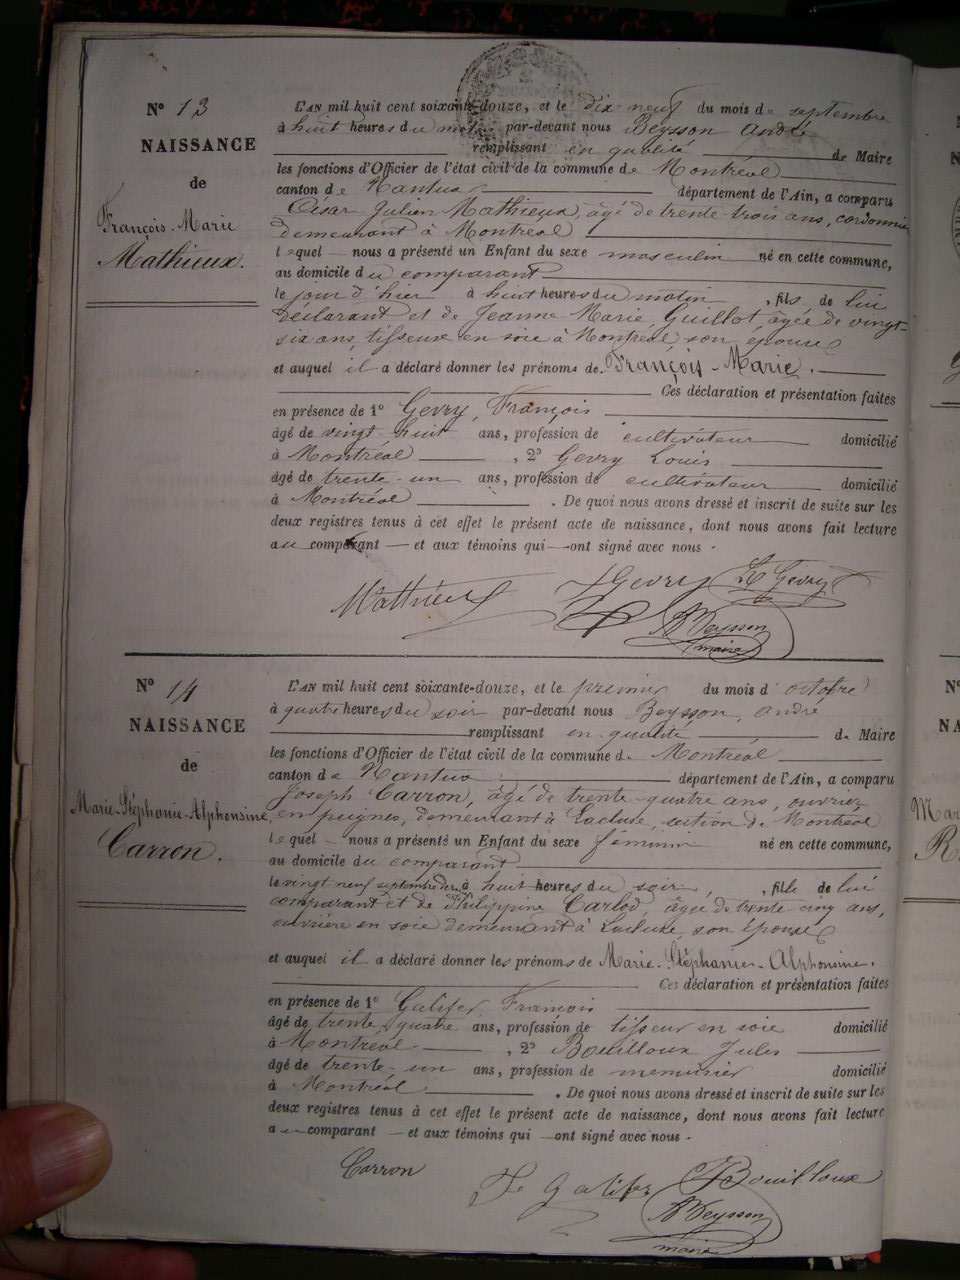 N° 13
NAISSANCE
de
François-Marie
Mathieux.
L'AN mil huit cent soixante-douze, et le dix-neuf du mois de septembre
à huit heures du matin par-devant nous Beysson André
remplissant en qualité de Maire
les fonctions d'Officier de l'état civil de la commune de Montréal
canton de Nantua département de l'Ain, a comparu
César Julien Mathieux, âgé de trente-trois ans, cordonnier
demeurant à Montréal
lequel nous a présenté un Enfant du sexe masculin né en cette commune,
au domicile du comparant
le jour d'hier à huit heures du matin, fils de lui
déclarant et de Jeanne Marie Guillot, âgée de vingt-
six ans, tisseuse en soie à Montréal, son épouse
et auquel il a déclaré donner les prénoms de François-Marie.
Ces déclaration et présentation faites
en présence de 1° Gevry, François
âgé de vingt-huit ans, profession de cultivateur domicilié
à Montréal, 2° Gevry Louis
âgé de trente-un ans, profession de cultivateur domicilié
à Montréal. De quoi nous avons dressé et inscrit de suite sur les
deux registres tenus à cet effet le présent acte de naissance, dont nous avons fait lecture
au comparant et aux témoins qui ont signé avec nous.
Mathieux Gevry L Gevry
Beysson
maire
N° 14
NAISSANCE
de
Marie-Stéphanie-Alphonsine
Carron.
L'AN mil huit cent soixante-douze, et le premier du mois d'octobre
à quatre heures du soir par-devant nous Beysson, André
remplissant en qualité de Maire
les fonctions d'Officier de l'état civil de la commune de Montréal
canton de Nantua département de l'Ain, a comparu
Joseph Carron, âgé de trente-quatre ans, ouvrier
en peignes, demeurant à Lacluse, section de Montréal
lequel nous a présenté un Enfant du sexe féminin né en cette commune,
au domicile du comparant
le vingt neuf septembre der à huit heures du soir, fille de lui
comparant et de Philippine Carlod, âgée de trente-cinq ans,
ouvrière en soie demeurant à Lacluse, son épouse
et auquel il a déclaré donner les prénoms de Marie-Stéphanie-Alphonsine.
Ces déclaration et présentation faites
en présence de 1° Galifer, François
âgé de trente-quatre ans, profession de tisseur en soie domicilié
à Montréal, 2° Bouilloux Jules
âgé de trente-un ans, profession de menuisier domicilié
à Montréal. De quoi nous avons dressé et inscrit de suite sur les
deux registres tenus à cet effet le présent acte de naissance, dont nous avons fait lecture
au comparant et aux témoins qui ont signé avec nous.
Carron
Galifer Bouilloux
Beysson
maire